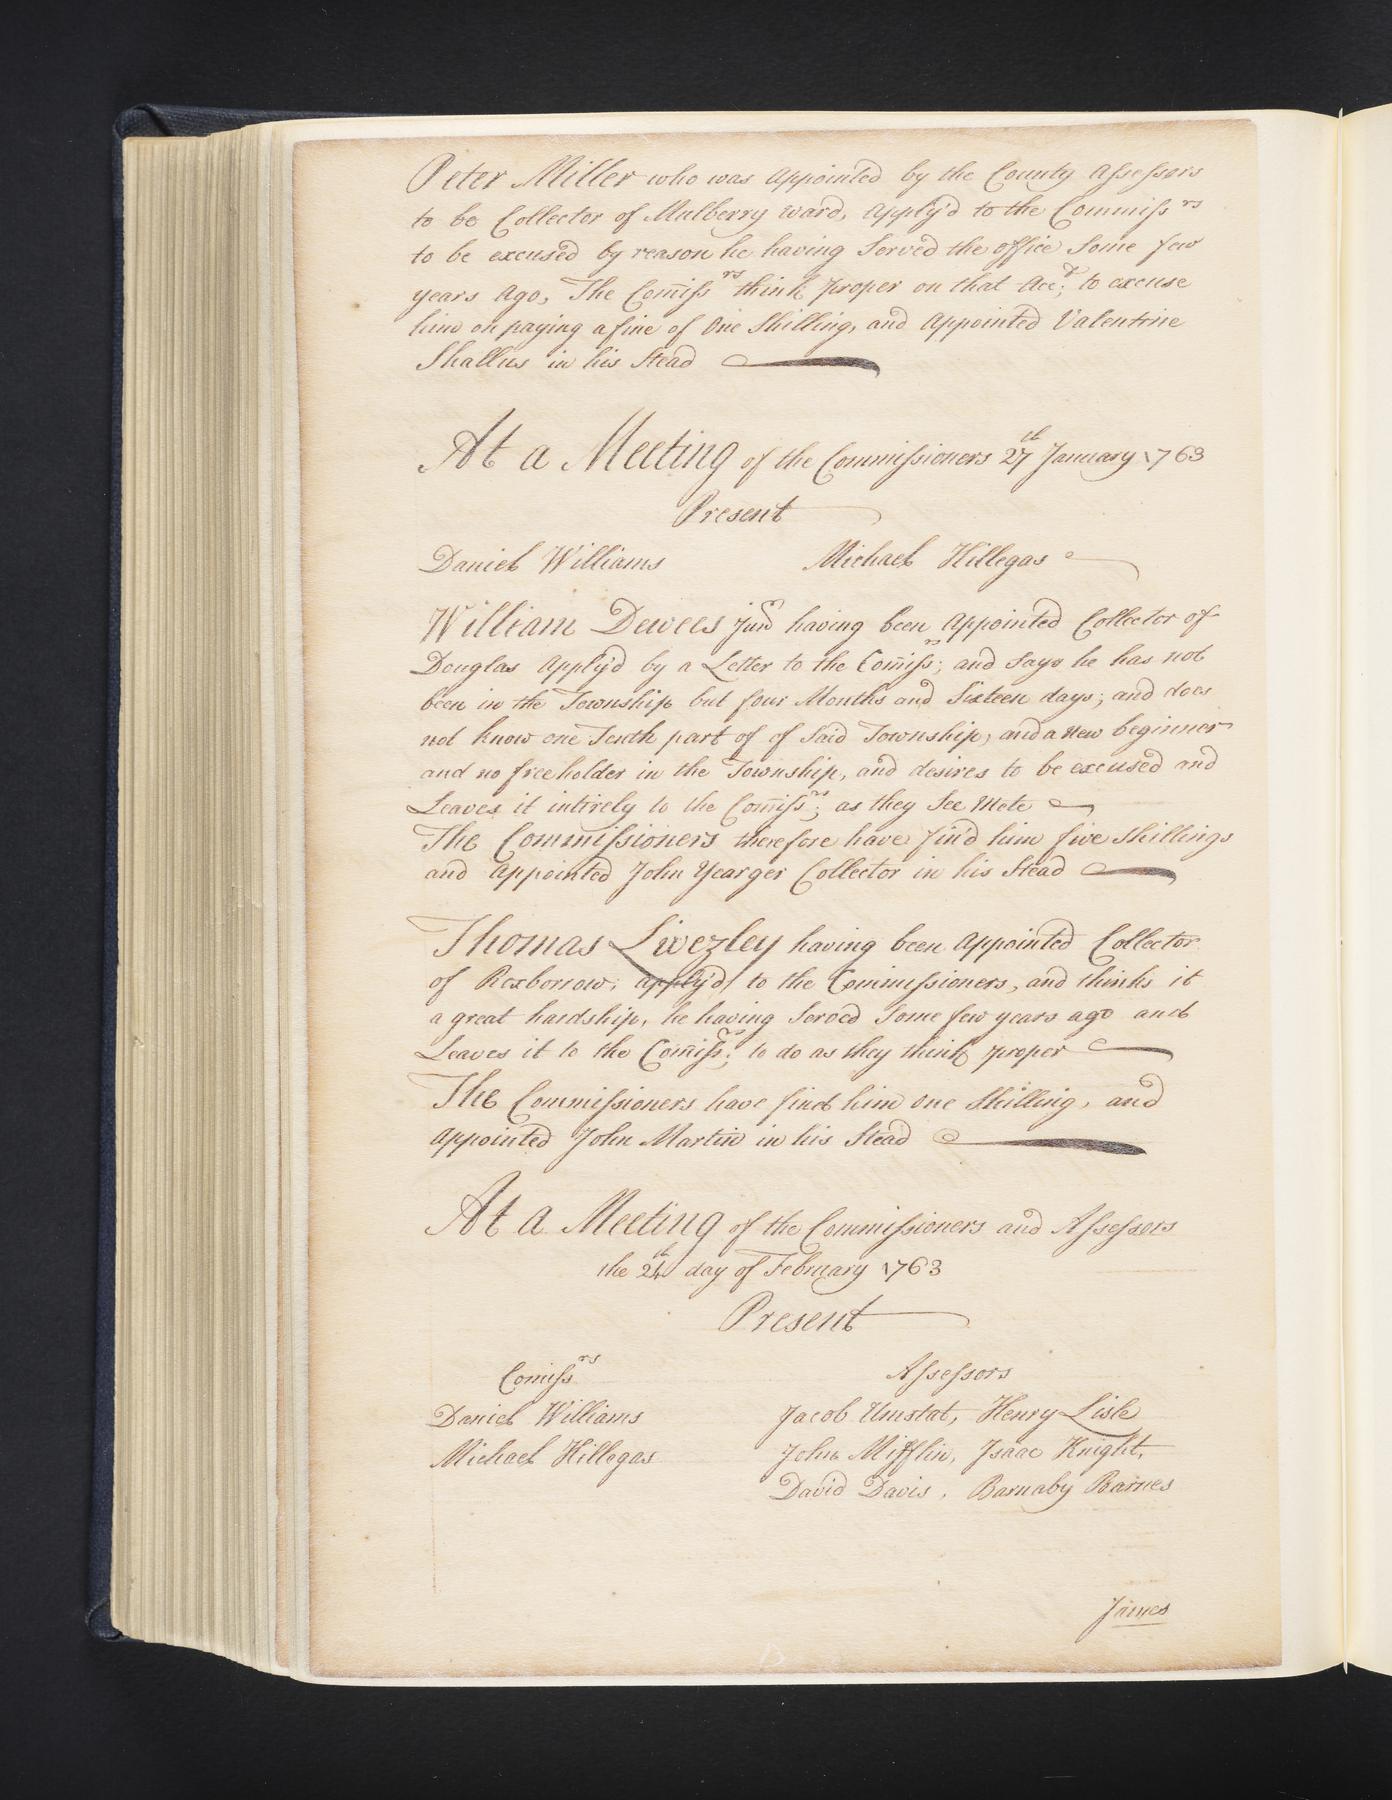 Peter Miller who was appointed by the County Assessors
to be Collector of Mulberry ward, apply'd to the Commissrs
to be excused by reason he having Served the office Some few
years ago, The Com̄issrs think proper on that Acct. to excuse
him on paying a fine of One Shilling, and appointed Valentine
Shallus in his Stead
At a Meeting of the Commissioners 27th January 1763
Present
Daniel Williams Michael Hillegas
William Dewees Junr having been appointed Collector of
Douglas apply'd by a Letter to the Com̄issrs; and Says he has not
been in the Township but four Months and Sixteen days; and does
not know one Tenth part of of Said Township, and a new beginner
and no freeholder in the Township, and desires to be excused and
Leaves it intirely to the Com̄issrs; as they See Mete
The Commissioners therefore have fin'd him five Shillings
and appointed John Yearger Collector in his Stead
Thomas Livezley having been appointed Collector
of Roxborrow; apply'd to the Commissioners, and thinks it
a great hardship, he having Served Some few years ago and
Leaves it to the Com̄issrs; to do as they think proper
The Commissioners have fin'd him One Shilling, and
appointed John Martin in his Stead
At a Meeting of the Commissioners and Assessors
the 24th day of February 1763
Present
Com̄issrs Assessors
Daniel Williams Jacob Umstat, Henry Lisle
Michael Hillegas John Mifflin, Isaac Knight,
David Davis, Barnaby Barnes
James